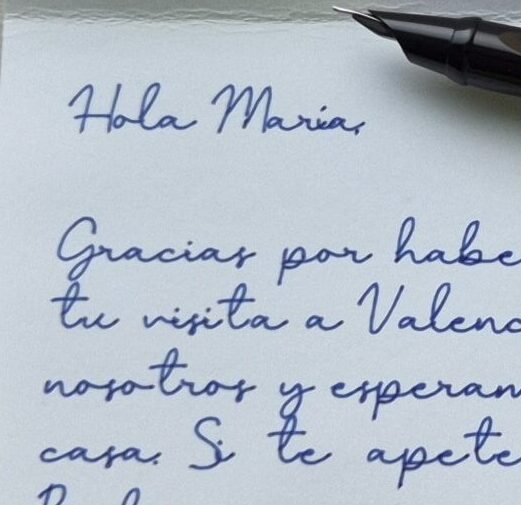 Hola Maria,
Gracias por habe
tu visita a Valenc
nosotros y esperam
casa. Si te apete